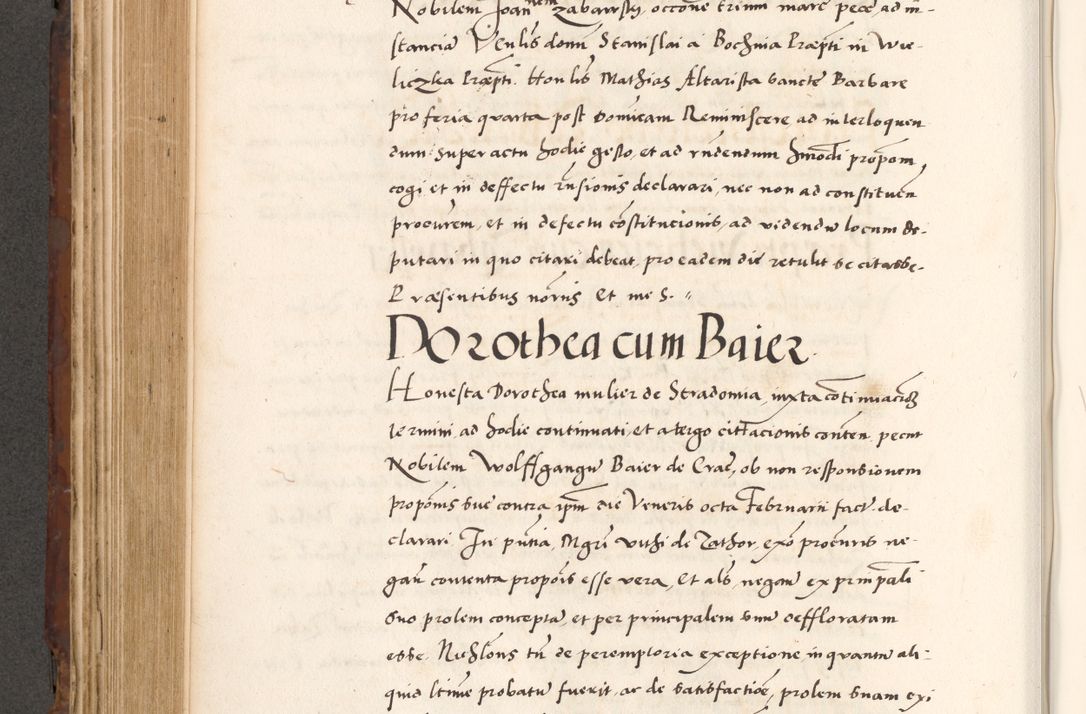 Nobilem Joannem Zabawsky, occone trium marc pecē, ad in-
stanciā Venlis domī Stanislai a Bochnia Præpti in Wie-
liczka Præpti. Honlis Mathias Altarista Sancte Barbare
pro feria quarta post Domīcam Reminiscere ad interloquen
dum super actu hodie gesto, et ad rñdendum hmōdi propōm,
cogi et in deffectu rñsionis declarari, nec non ad constituēn
procurem, et in defectu cōstitucionis, ad videndū locum de-
putari in quo citari debeat, pro eadem die retulit se citasse.
Præsentibus norīis Et me S.
Dorothea cum Baier.
Honesta Dorothea mulier de Stradomia, iuxta cōtinuacionē
termini ad hodie continuati, et a tergo cittacionis conten. pecut
Nobilem Wolffgangū Baier de Crac̄, ob non responsionem
propōnis sue contra ip̄m die Veneris octa Februarii fact. de-
clarari. In pn̄tia, Mgrī Vithi de Tathor, exō procuris ne-
gan̄ contenta propōis esse vera, Et als neganē ex prinpali
suo prolem conceptā, et per principalem suū oeffloratam
esse. Nichlons tn̄ de peremptoria exceptione, in quantū ali-
quid ltime probatū fuerit, ac de satisfactiōe, prolem suam exi